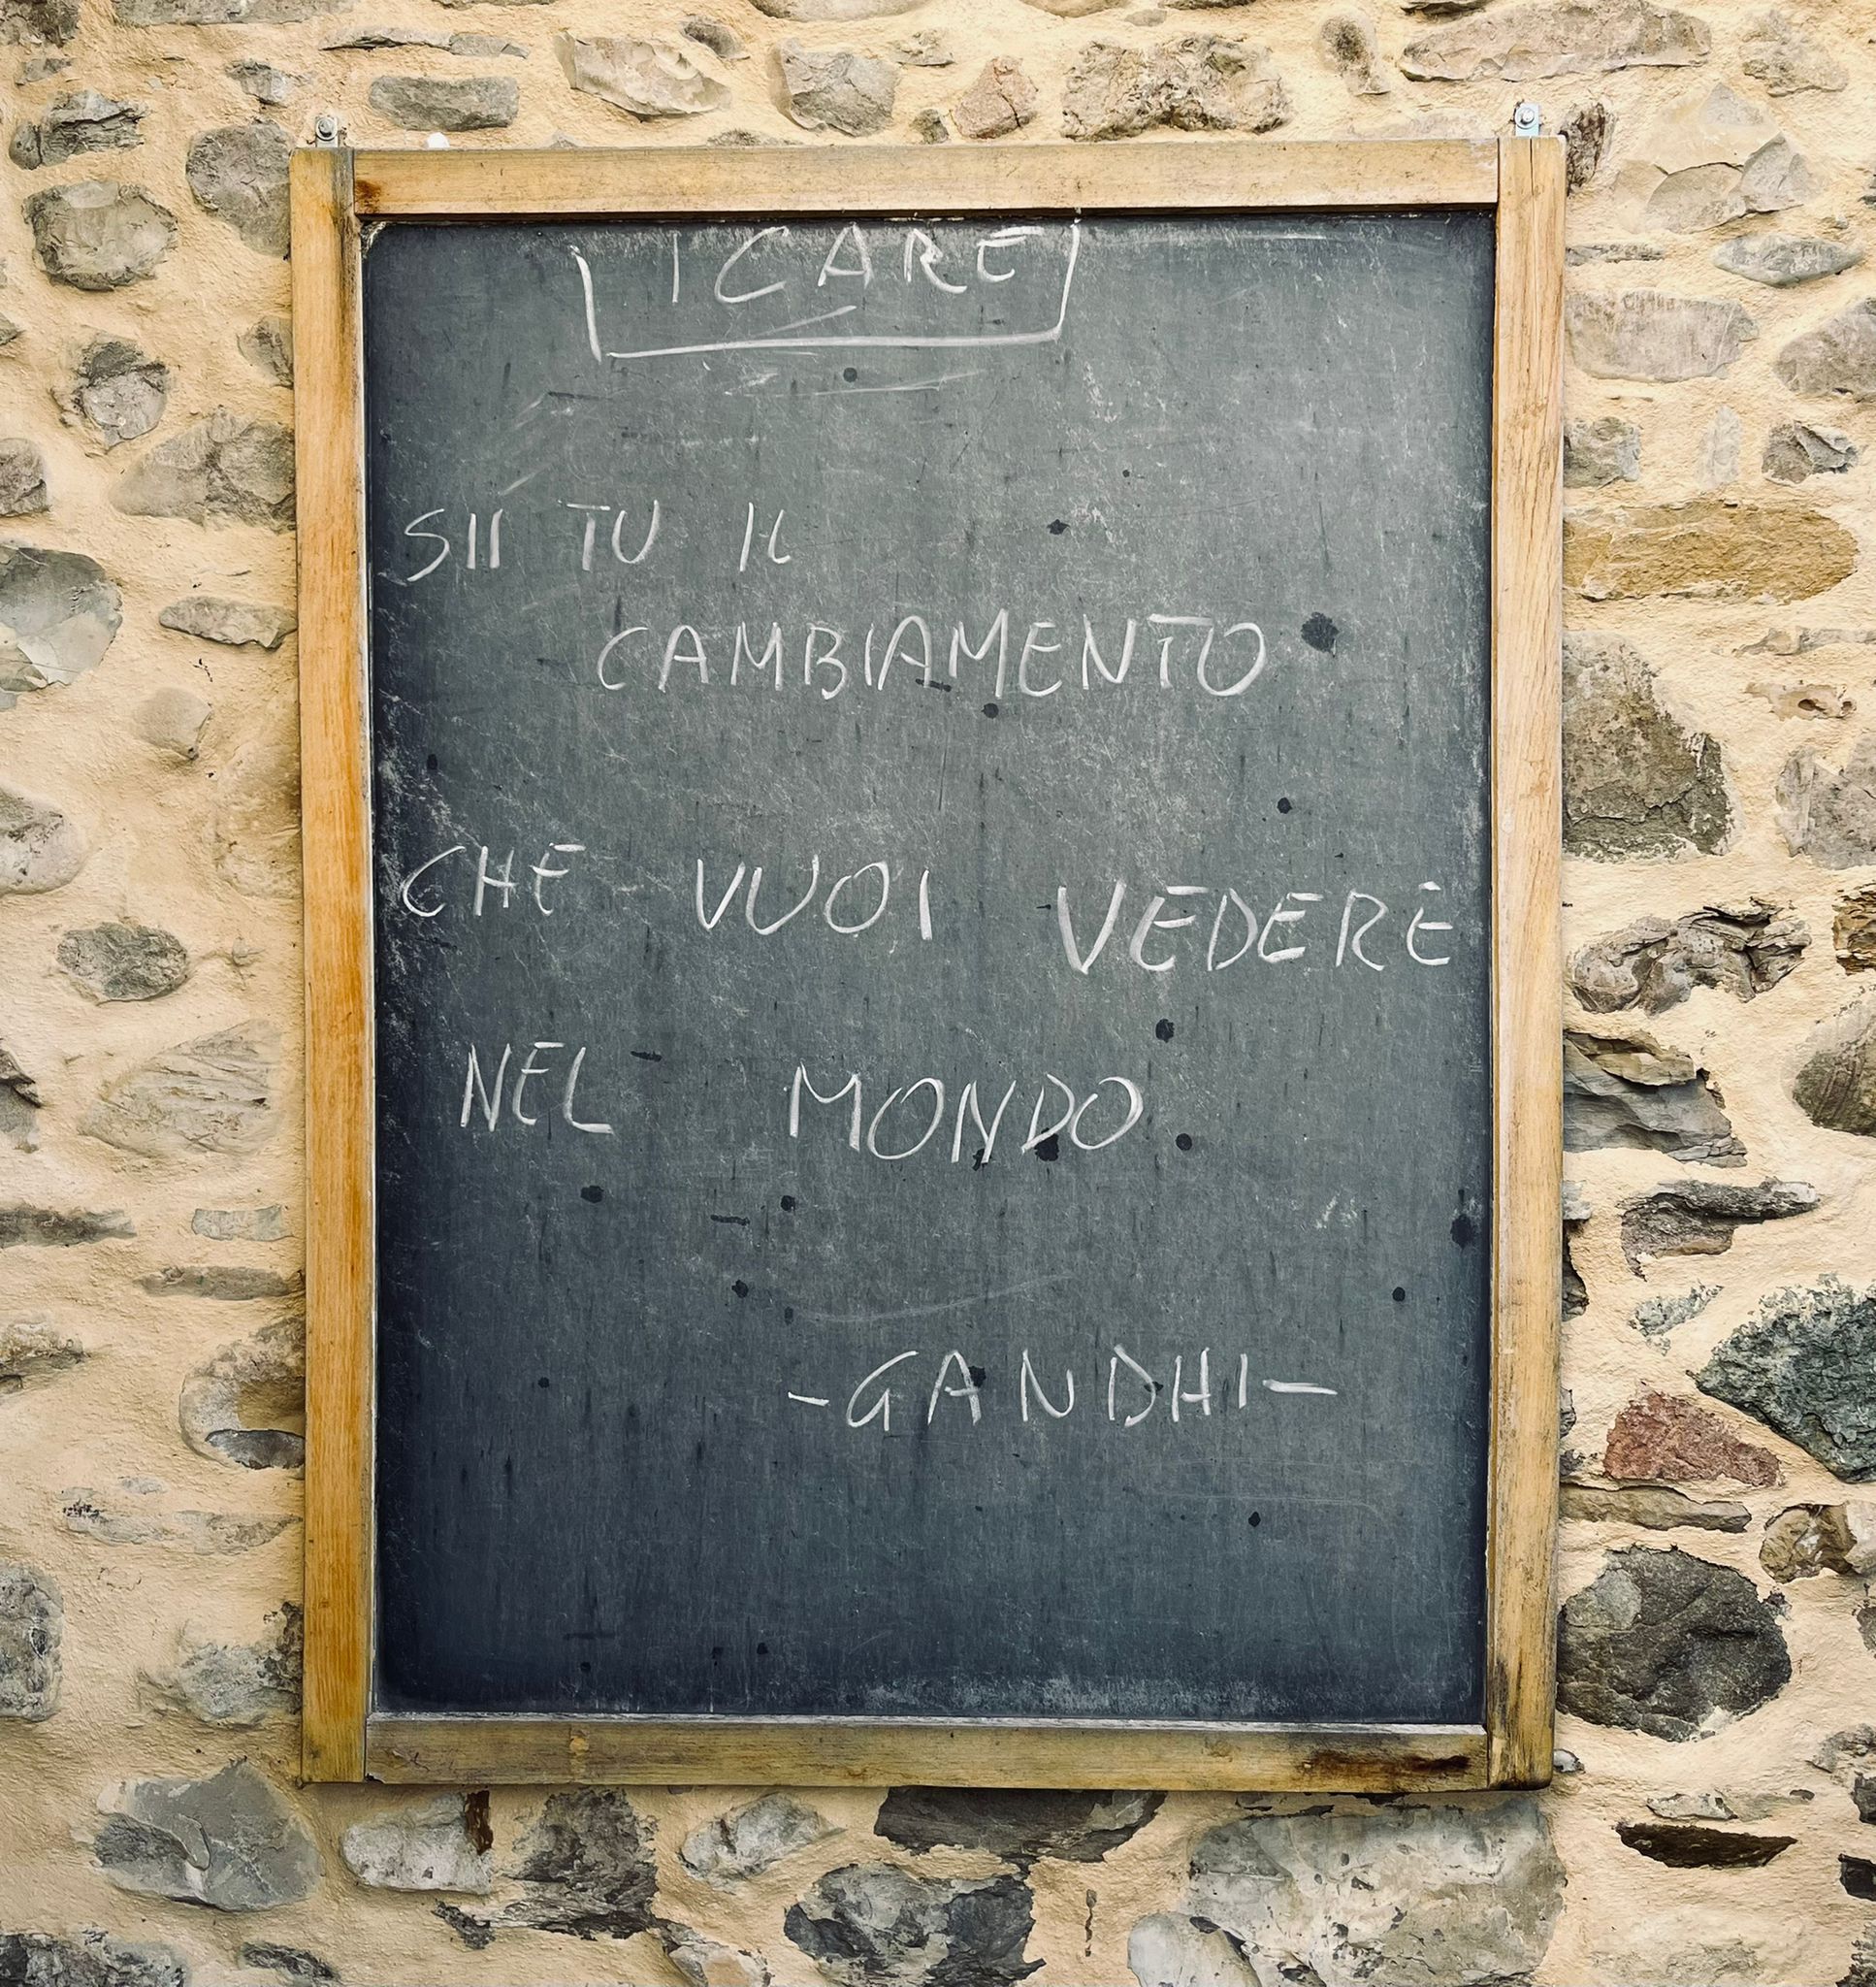 I CARE
SII TU IL
CAMBIAMENTO
CHE VUOI VEDERE
NEL MONDO
-GANDHI-